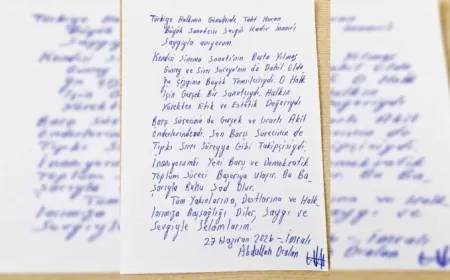 Türkiye Halkının Gönlünde Taht Kuran
Büyük Sanatçısı Sevgili Kadir İnanır'ı
Saygıyla anıyorum.
Kendisi Sinema Sanatı'nın Başta Yılmaz
Güney ve Sırrı Süreyya'nın da Dahil Olduğu
Bu Çizginin Büyük Temsilcisiydi. O Halk
İçin Gerçek Bir Sanatçıydı. Halkın
Yürekten Etik ve Estetik Değeriydi
Barış Sürecinin de Gerçek ve Israrlı Akil
Önderlerindendi. Son Barış Sürecinin de
Tıpkı Sırrı Süreyya Gibi Takipçisiydi.
İnanıyorumki Yeni Barış ve Demokratik
Toplum Süreci Başarıya Ulaşır. Bu Ba-
şarıyla Ruhu Şad Olur.
Tüm Yakınlarına, Dostlarına ve Halk-
larımıza Başsağlığı Diler, Saygı ve
Sevgiyle Selamlarım.
27 Haziran 2026 - İmralı
Abdullah Öcalan